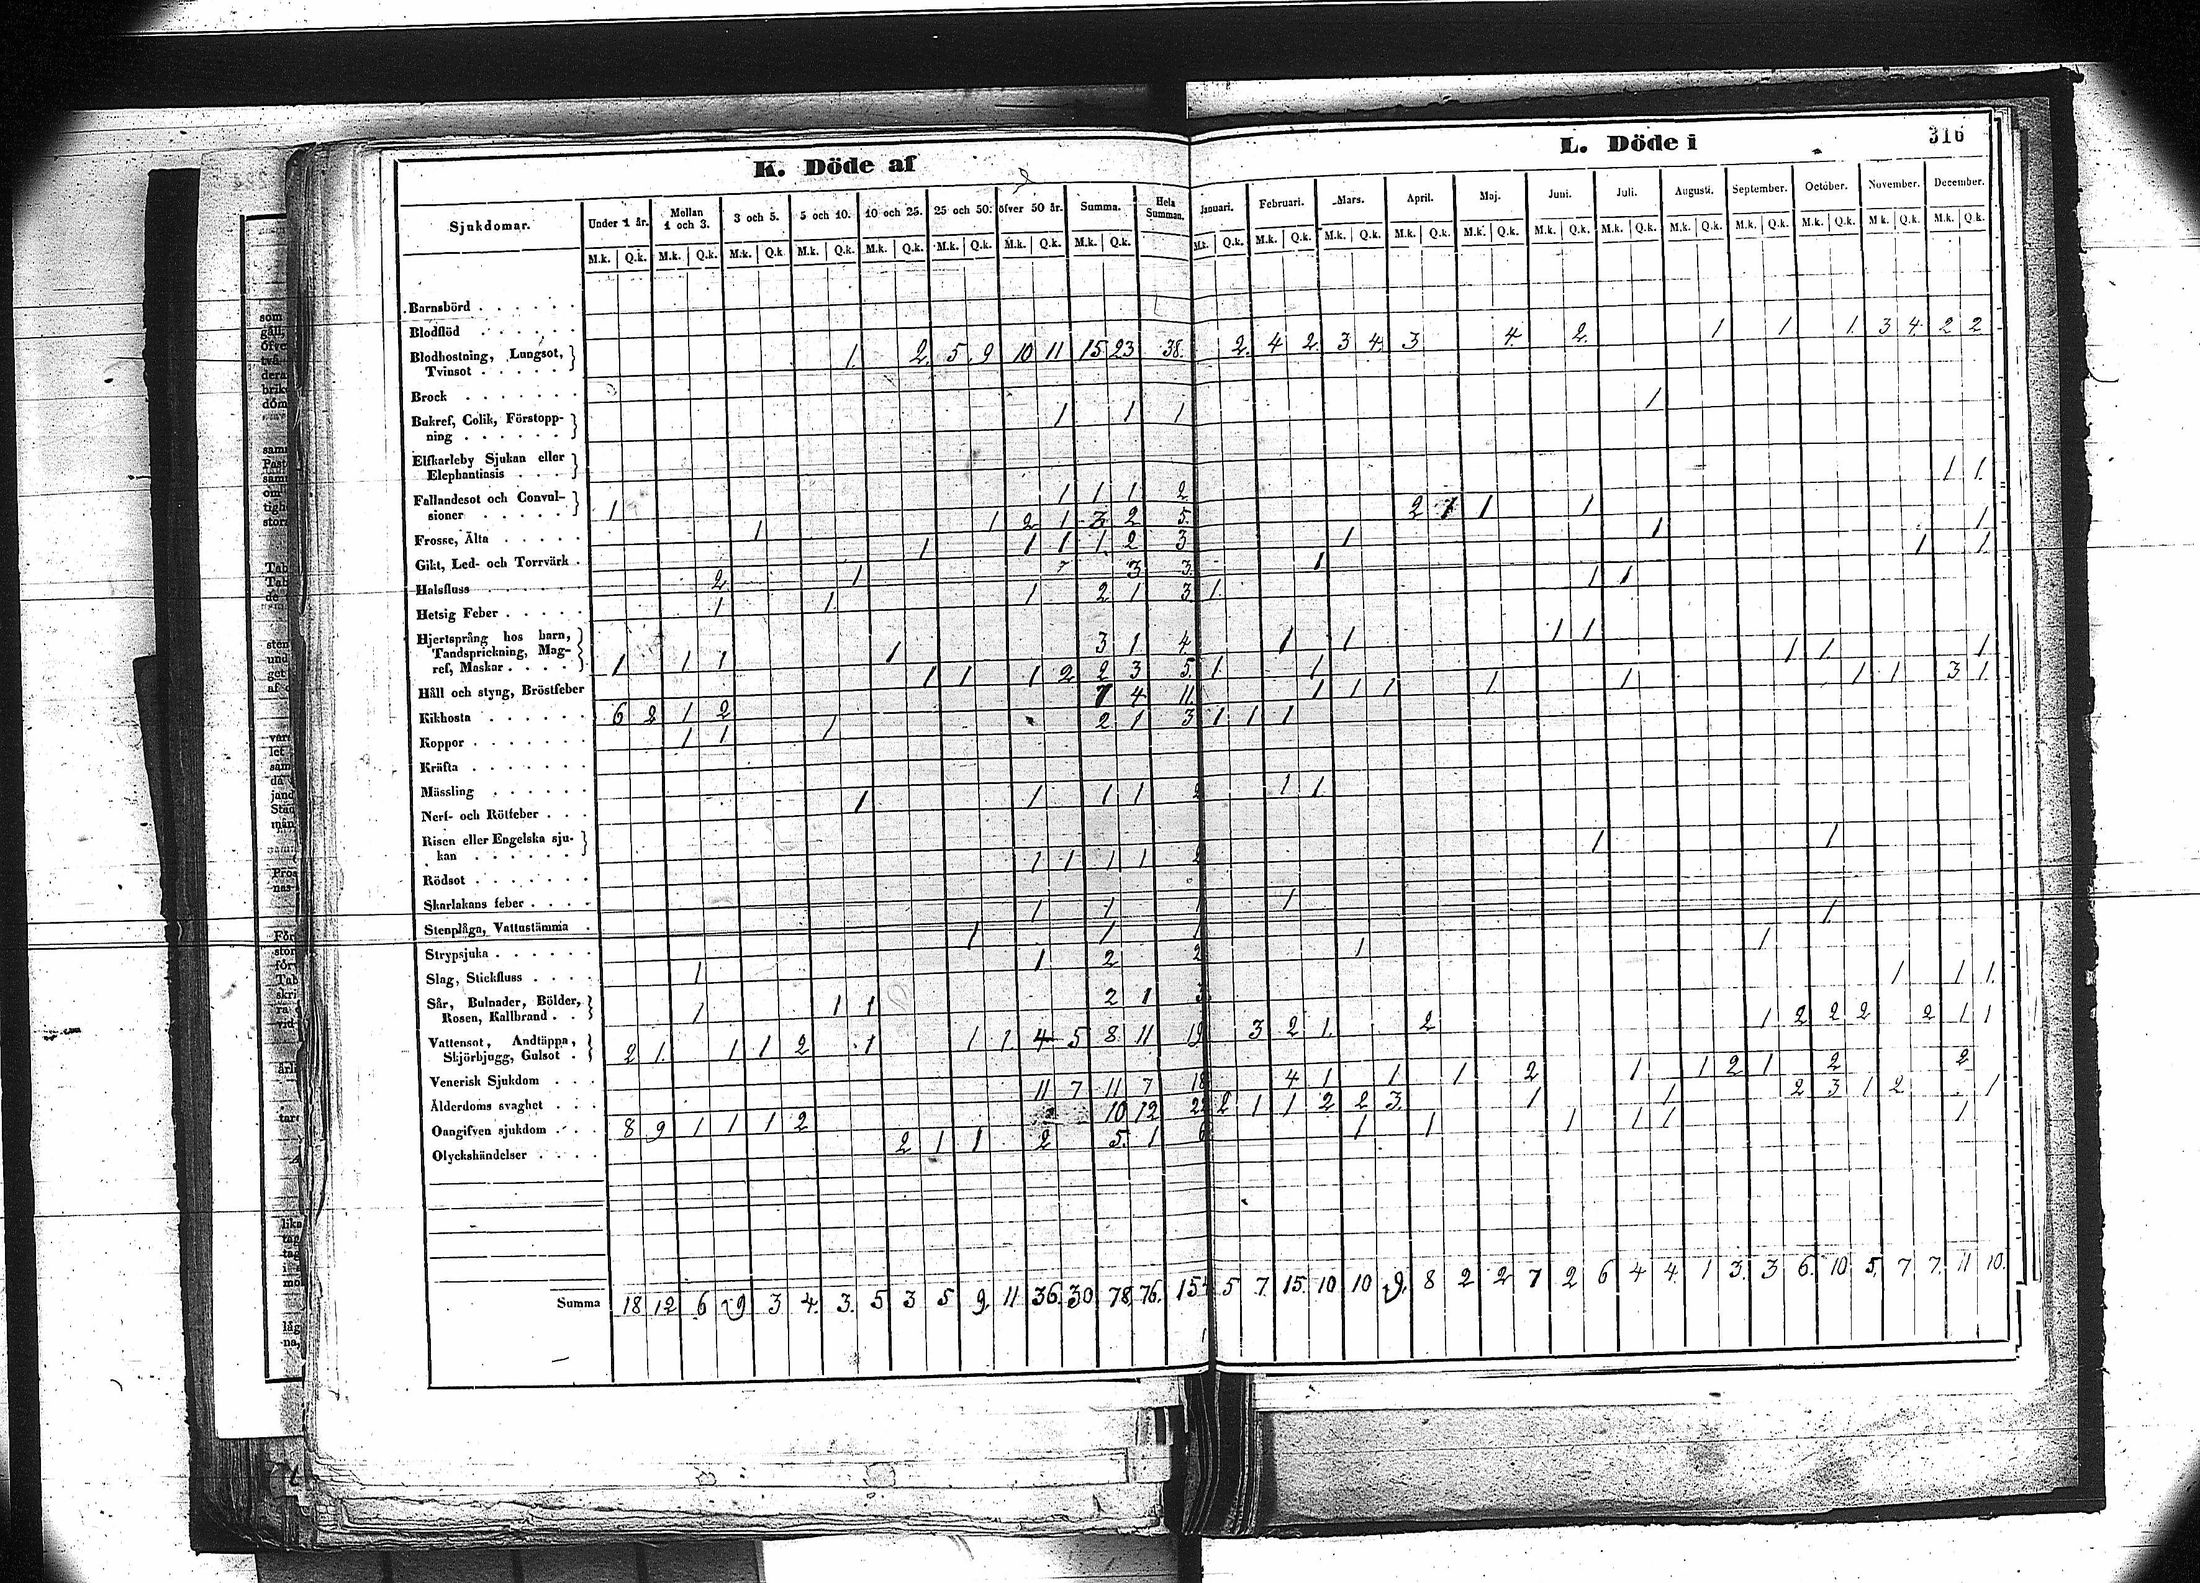 K. Döde af
L. Döde i
316
Sjukdomar. Under 1 år. Mellan 1 och 3. 3 och 5. 5 och 10. 10 och 25. 25 och 50. öfver 50 år. Summa. Hela Summan. Januari. Februari. Mars. April. Maj. Juni. Juli. Augusti. September. October. November. December.
M.k. Q.k. M.k. Q.k. M.k. Q.k. M.k. Q.k. M.k. Q.k. M.k. Q.k. M.k. Q.k. M.k. Q.k. M.k. Q.k. M.k. Q.k. M.k. Q.k. M.k. Q.k. M.k. Q.k. M.k. Q.k. M.k. Q.k. M.k. Q.k. M.k. Q.k. M.k. Q.k. M.k. Q.k. M.k. Q.k.
Barnsbörd
Blodflöd
Blodhostning, Lungsot,
Tvinsot 1. 2. 5 9 10 11 15 23 38. 2. 4 2. 3 4. 3 4. 2. 1 1 1. 3 4. 2 2
Brock
Bukref, Colik, Förstopp-
ning 1 1 1 1
Elfkarleby Sjukan eller
Elephantiasis
Fallandesot och Convul-
sioner 1 1 1 1 2 1 1.
Frosse, Älta 1 1 2 1 3 2 5. 2 1 1 1
Gikt, Led- och Torrvärk 1 1 1 1. 2 3 1 1 1
Halsfluss 2 1 3 3. 1 1 1.
Hetsig Feber 1 1 1 2 1 3 1. 1 1
Hjertsprång hos barn,
Tandsprickning, Mag-
ref, Maskar 1 1 1 1 3 1 4 1 1 1 1
Håll och styng, Bröstfeber 1 1 1 2 2 3 5. 1. 1 1 1 1
Kikhosta 6 2 1 2 7 4 11. 1 1 1 1 1 1 1 3 1
Koppor 1 1 1 2 1 3 1 1 1
Kräfta
Mässling
Nerf- och Rötfeber 1 1 1 1 2 1 1.
Risen eller Engelska sju-
kan
Rödsot 1 1 1 1 2 1 1
Skarlakans feber
Stenplåga, Vattustämma 1 1 1 1
Strypsjuka 1 1 1 1
Slag, Stickfluss 1 1 2 2 1 1
Sår, Bulnader, Bölder,
Rosen, Kallbrand 1 1 1 2 1 3 1 1 1.
Vattensot, Andtäppa,
Skjörbjugg, Gulsot 2 1. 1 1 2 1 1 1. 4 5 8. 11. 19 3 2 1. 2 1 2 2 2 2 1 1
Venerisk Sjukdom
Ålderdoms svaghet 11 7 11 7 18 4 1 1 1 2 1 1 2 1 2 2
Oangifven sjukdom 8 9 1 1 1 2 10 12 22 2 1 1 2 2 3. 1 1 2 3 1 2 1
Olyckshändelser 2 1 1 2 5. 1 6 1 1 1 1 1 1
Summa 18 12 6 9 3 4. 3. 5 3 5 9. 11 36. 30 78. 76. 154 5 7 15. 10 10 9. 8 2 2 7 2 6 4 4. 1 3. 3 6. 10 5. 7 7. 11 10.